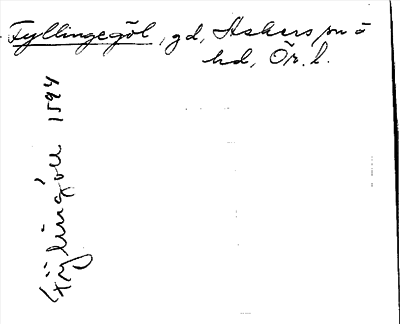 Fyllingegöl, gd, Askers sn o
hd, Ör. l.
Fÿlingöell 1594